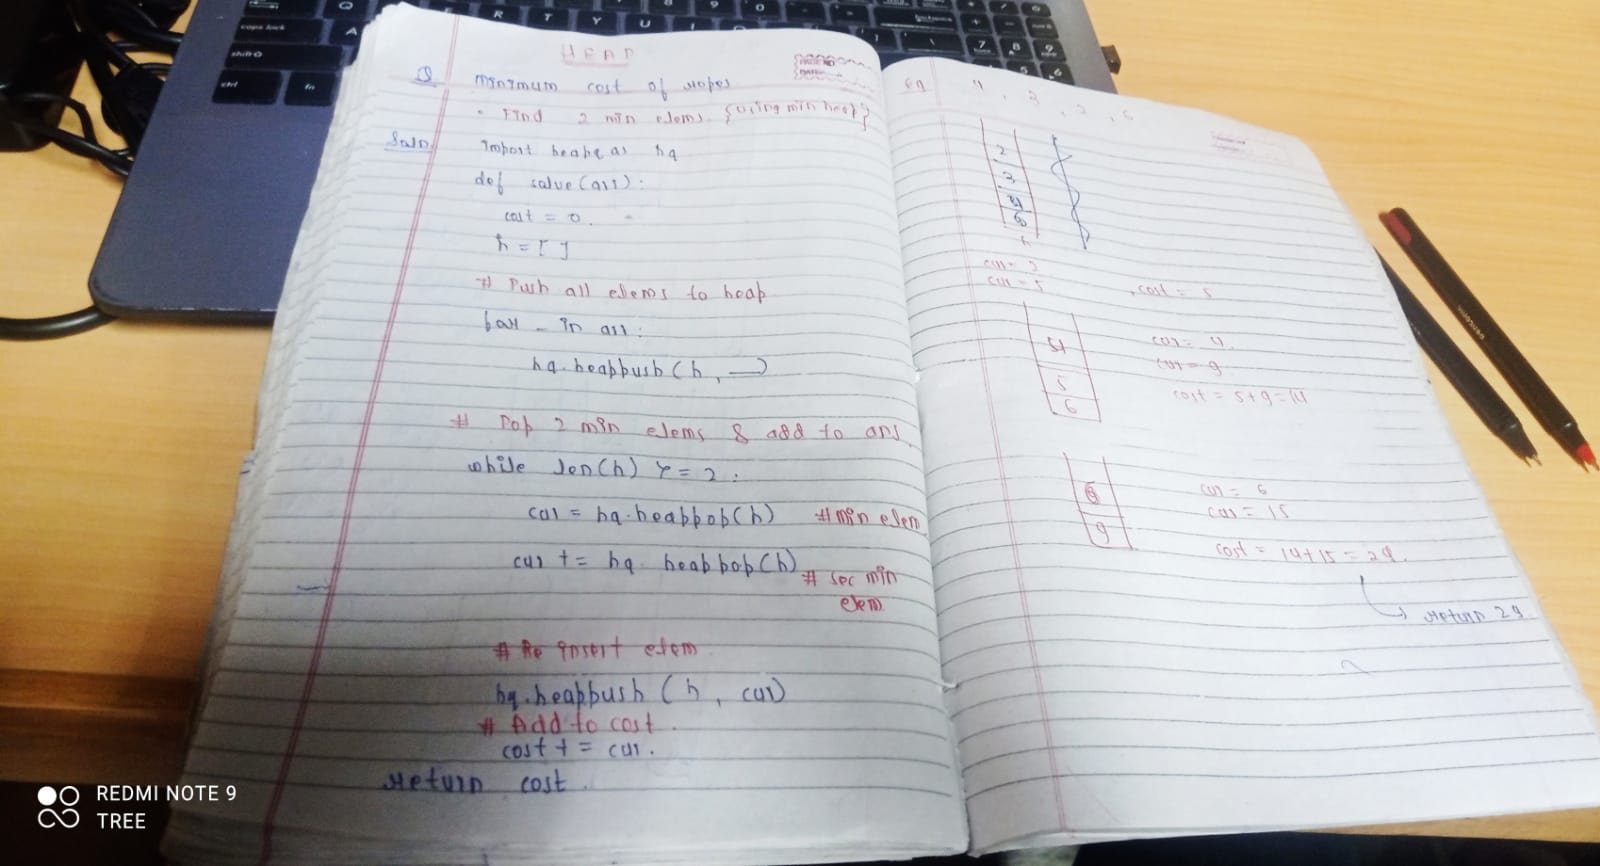 HEAP
Q Minimum cost of ropes
- Find 2 min elems. {using min heap}
Soln
import heapq as hq
def solve(arr):
cost = 0.
h = [ ]
# Push all elems to heap
for _ in arr:
hq.heappush(h, _)
# Pop 2 min elems & add to ans.
while len(h) >= 2:
cur = hq.heappop(h) #min elem
cur += hq.heappop(h)
# sec min
elem
# Re insert elem
hq.heappush(h, cur)
# Add to cost.
cost += cur.
return cost.
PAGE NO
DATE:
Eg 4, 3, 2, 6
2
3
4
6
h
cur = 2
cur = 5
cost = 5
4
5
6
cur = 4.
cur = 9
cost = 5+9=14
6
9
cur = 6
cur = 15
cost = 14+15=29.
return 29
caps lock
shift
ctrl
fn
Q
A
R
T
Y
U
8
9
0
7
8
9
5
6
backspace
REDMI NOTE 9
TREE